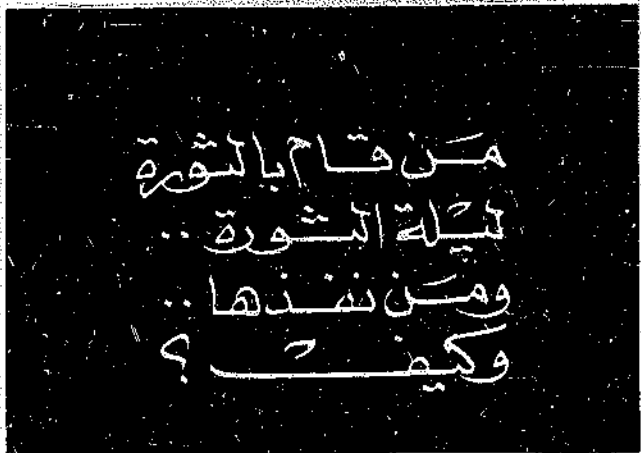 مَن قام بالثورة
ليْلة الثورة ..
ومَن نفذها ..
وكيفْ ؟